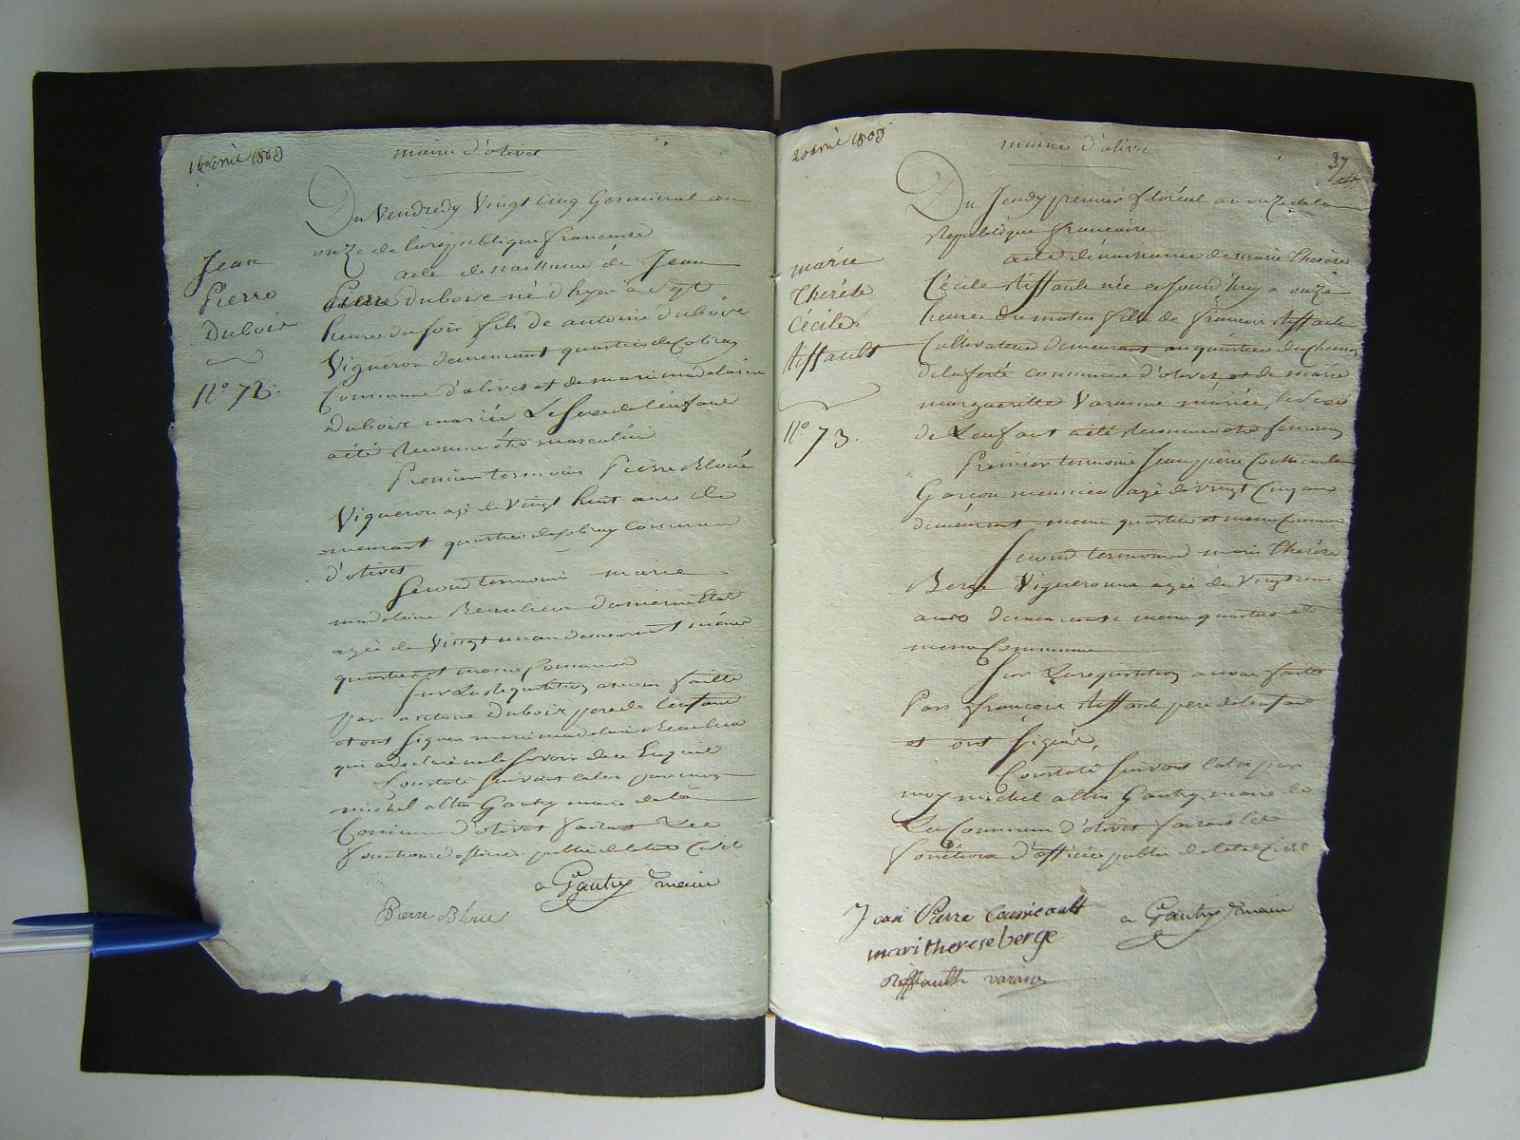 avril 1803
mairie d'olivet
Du Vendredy Vingt cinq Germinal an
onze de la republique francaise
acte de naissance de Jean
Pierre Dubois né d'hyer a sept
heures du soir fils de antoine dubois
Vigneron demeurant quartier de
Commune d'olivet et de marie madelaine
dubois mariée Le Sexe de lenfant
a été Reconnu être masculin
Premier temoin Pierre
Vigneron agé de Vingt huit ans de
meurant quartier Commune
d'olivet
Second temoin marie
madelaine Beaulieu
agée de Vingt un an demeurant même
quartier et même Commune
Sur La Requisition a nous faitte
par antoine Dubois pere de lenfant
et ont Signé marie madelaine Beaulieu
qui a declaré ne le Savoir de ce Enquise
Constaté Suivant la loi par moy
michel albin Gautry maire de la
Commune d'olivet faisant Les
fonctions d'officier public de letat Civil
a Gautry maire
Pierre
Jean
Pierro
Dubois
N° 72.
20 avril 1803
mairie d'olivet
37
Du Jeudy premier floréal an onze de la
Republique francaise
acte de naissance de marie Therese
Cécile Riffault née cejourd'huy a onze
heures du matin fille de francois Riffault
Cultivateur demeurant au quartier du Chemin
de la ferté commune d'olivet et de marie
margueritte Varanne mariée, Le Sexe
de Lenfant a été Reconnu etre feminin
Premier temoin Jean pierre
Garcon meunier agé de Vingt Cinq ans
demeurant meme quartier et meme Commune
Second temoin marie Therese
Berge Vigneronne agée de Vingt
ans demeurant meme quartier et
meme Commune
Sur La requisition a nous faitte
Par francois Riffault pere de lenfant
et ont Signé,
Constaté Suivant la loi par
moy michel albin Gautry maire de
La Commune d'olivet faisant les
fonctions d'officier public de letat Civil
Jean Pierre
a Gautry maire
marie therese berge
Riffault
marie
Therése
Cécile
Riffault
N° 73.